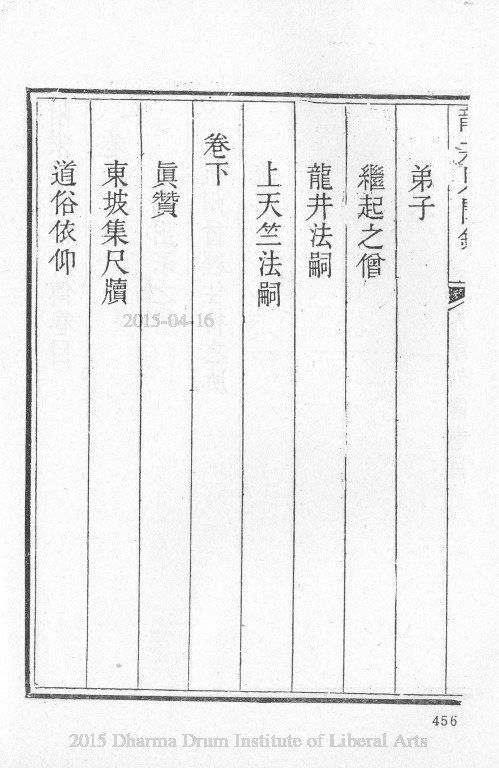 弟子
繼起之僧
龍井法嗣
上天竺法嗣
卷下
眞贊
東坡集尺牘
道俗依仰
2015-04-16
456
2015 Dharma Drum Institute of Liberal Arts